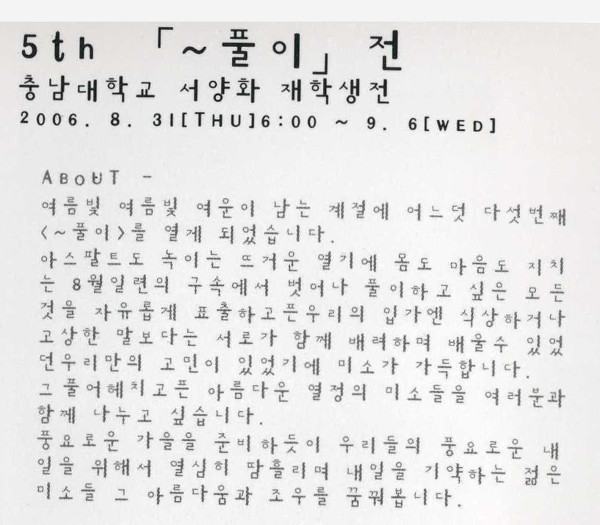 5th 「~풀이」 전
충남대학교 서양화 재학생전
2006. 8. 31[THU]6:00 ~ 9. 6[WED]
ABOUT -
여름빛 여름빛 여운이 남는 계절에 어느덧 다섯번째
<~풀이>를 열게 되었습니다.
아스팔트도 녹이는 뜨거운 열기에 몸도 마음도 지치
는 8월일련의 구속에서 벗어나 풀이하고 싶은 모든
것을 자유롭게 표출하고픈우리의 입가엔 식상하거나
고상한 말보다는 서로가 함께 배려하며 배울수 있었
던우리만의 고민이 있었기에 미소가 가득합니다.
그 풀어헤치고픈 아름다운 열정의 미소들을 여러분과
함께 나누고 싶습니다.
풍요로운 가을을 준비하듯이 우리들의 풍요로운 내
일을 위해서 열심히 땀흘리며 내일을 기약하는 젊은
미소들 그 아름다움과 조우를 꿈꿔봅니다.